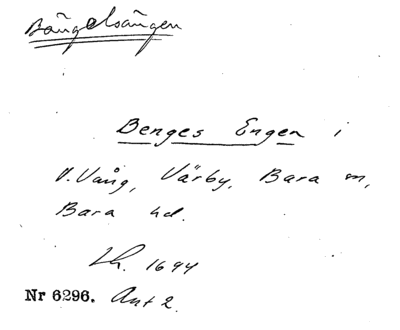 Bängelsängen
Benges Engen i
V. Vång, Värby, Bara sn,
Bara hd.
Lh. 1694
Nr 6296. Ant 2.